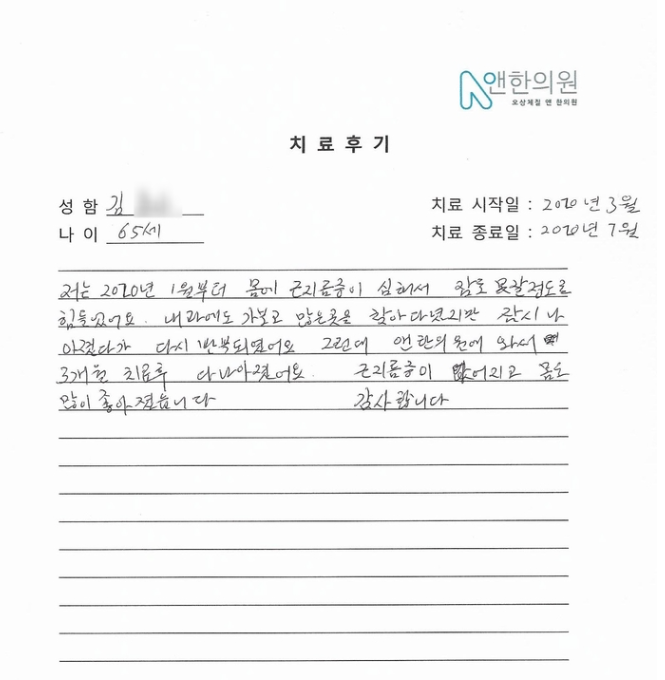 앤한의원
오상체질 앤 한의원
치료후기
성함 김
치료 시작일 : 2020년 3월
나이 65세
치료 종료일 : 2020년 7월
저는 2020년 1월부터 몸에 근지름증이 심해서 잠도 못잘정도로
힘들었어요. 내과에도 가보고 많은곳을 찾아다녔지만 잠시 나
아졌다가 다시 반복되었어요 그런데 앤한의원에 와서
3개월 치료후 다 나아졌어요. 근지름증이 없어지고 몸도
많이 좋아졌습니다 감사합니다